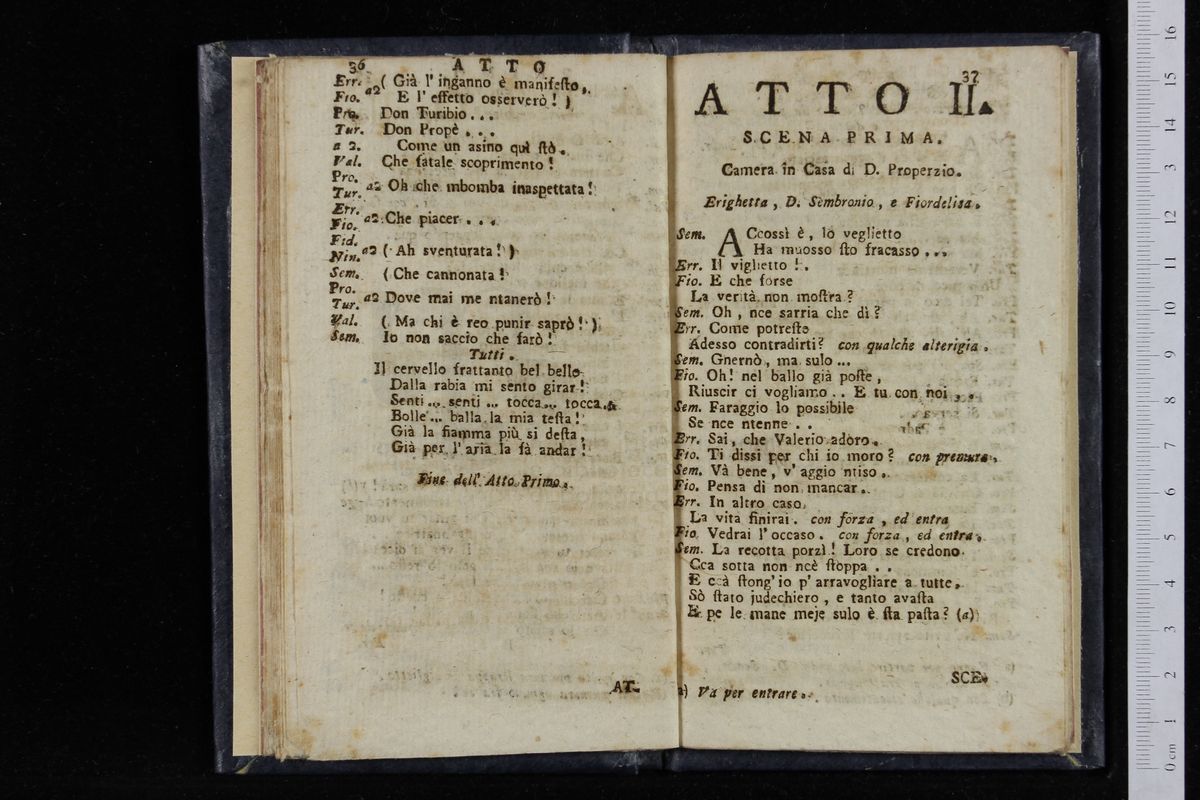 36 ATTO
Err. a2 ( Già l'inganno è manifeſto,
Fio. E l'effetto osserverò! )
Pro. Don Turibio...
Tur. Don Propè...
a 2. Come un asino quì ſtò.
Val. Che fatale scoprimento!
Pro.
Tur. a2 Oh che mbomba inaspettata!
Err.
Fio. a2 Che piacer...
Fid.
Nin. a2 ( Ah sventurata! )
Sem. ( Che cannonata!
Pro.
Tur. a2 Dove mai me ntanerò!
Val. ( Ma chi è reo punir saprò! )
Sem. Io non saccio che farò!
Tutti.
Il cervello frattanto bel bello
Dalla rabia mi sento girar!
Senti... senti... tocca... tocca.
Bolle... balla la mia teſta!
Già la fiamma più si deſta,
Già per l'aria la fà andar!
Fine dell' Atto Primo.
AT-
37
ATTO II.
SCENA PRIMA.
Camera in Casa di D. Properzio.
Erighetta, D. Sembronio, e Fiordelisa.
Sem. ACcossì è, lo veglietto
Ha muosso ſto fracasso...
Err. Il viglietto!.
Fio. E che forse
La verità non moſtra?
Sem. Oh, nce sarria che dì?
Err. Come potreſte
Adesso contradirti? con qualche alterigia.
Sem. Gnernò, ma sulo...
Fio. Oh! nel ballo già poſte,
Riuscir ci vogliamo.. E tu con noi...
Sem. Faraggio lo possibile
Se nce ntenne..
Err. Sai, che Valerio adoro.
Fio. Ti dissi per chi io moro? con premura.
Sem. Và bene, v'aggio ntiso.
Fio. Pensa di non mancar.
Err. In altro caso
La vita finirai. con forza, ed entra
Fio. Vedrai l'occaso. con forza, ed entra.
Sem. La recotta porzì! Loro se credono
Cca sotta non ncè ſtoppa..
E ccà ſtong'io p'arravogliare a tutte.
Sò ſtato judechiero, e tanto avaſta
E pe le mane meje sulo è ſta paſta? (a)
SCE-
a) Va per entrare.